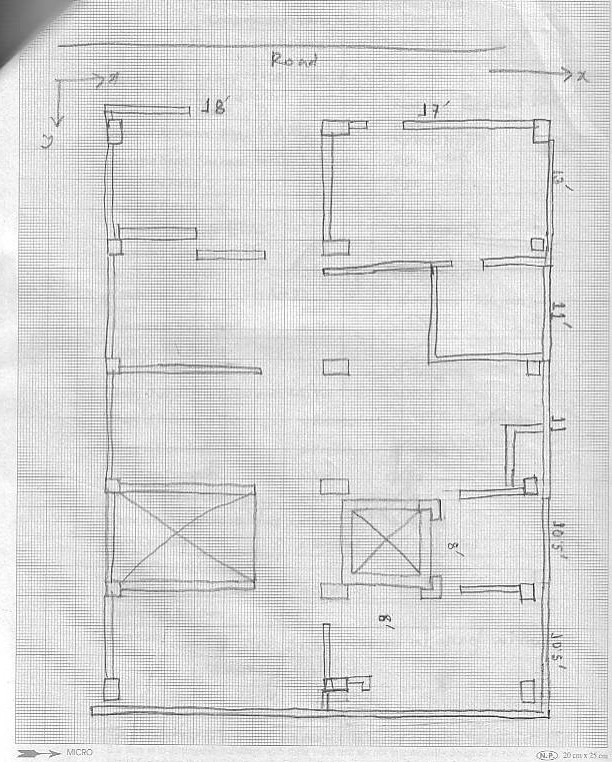 Road
x
x
y
18'
17'
13'
11'
11
10'5'
8'
8'
10'5'
MICRO
N.P. 20 cm x 25 cm